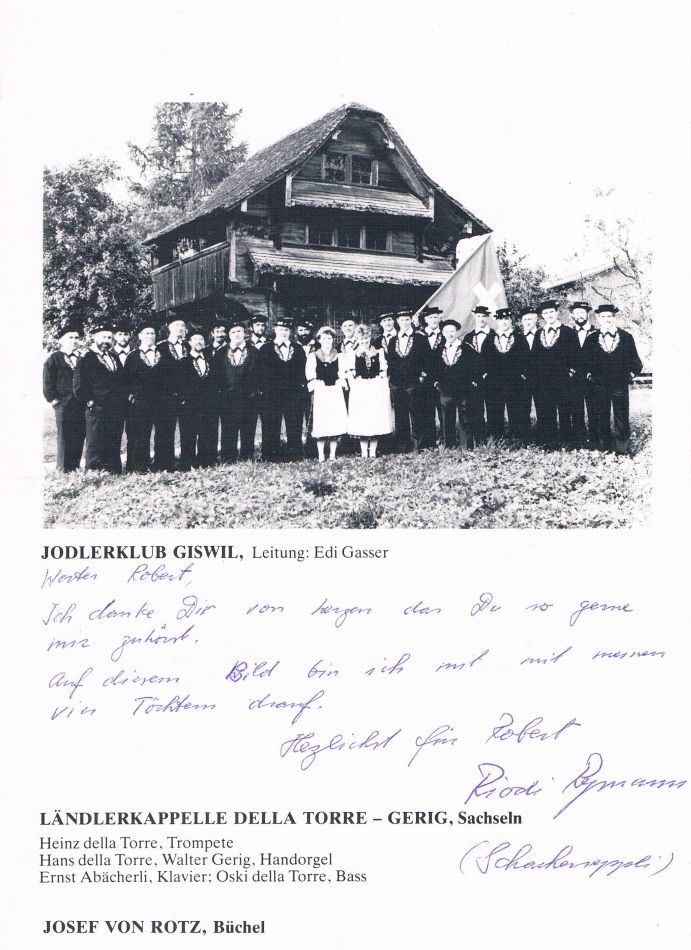 JODLERKLUB GISWIL, Leitung: Edi Gasser
Werter Robert,
Ich danke Dir von herzen das Du so gerne
mir zuhörst.
Auf diesem Bild bin ich mit mit meinen
vier Töchtern drauf.
Herzlichst für Robert
Ruedi Rymann
LÄNDLERKAPPELLE DELLA TORRE – GERIG, Sachseln
Heinz della Torre, Trompete
Hans della Torre, Walter Gerig, Handorgel
(Schacherseppli)
Ernst Abächerli, Klavier; Oski della Torre, Bass
JOSEF VON ROTZ, Büchel